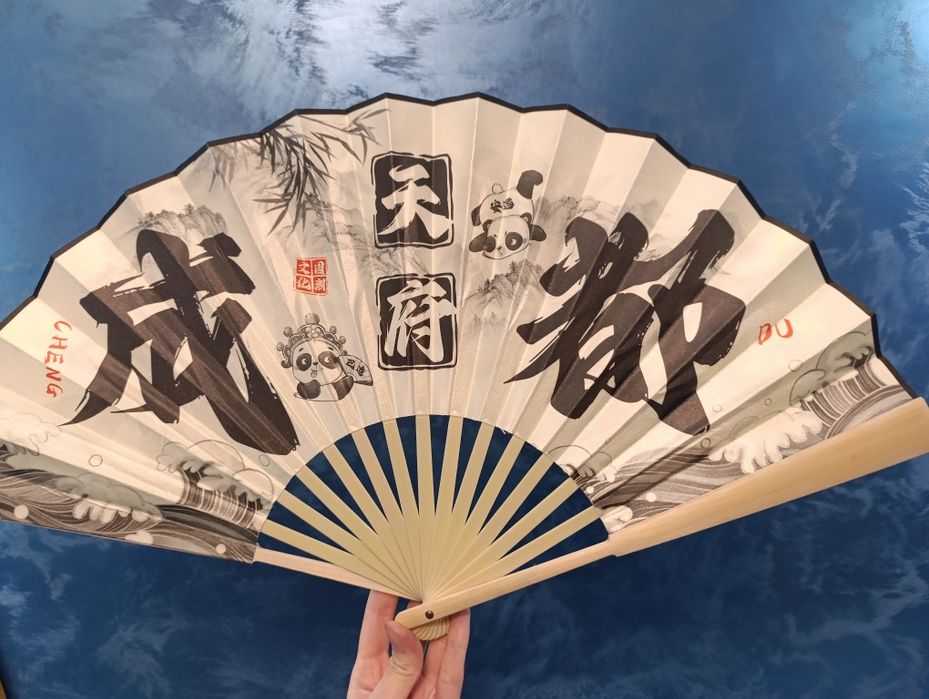 成都
天府
CHENG
DU
国潮
文化
安逸
巴适